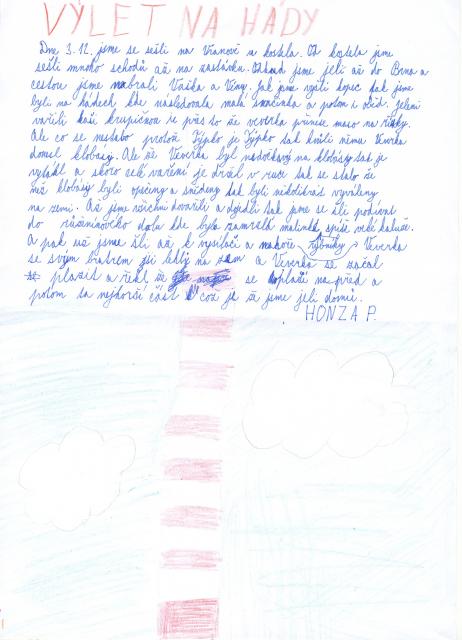 VÝLET NA HÁDY
Dne 3.12. jsme se sešli na Vranově u kostela. Od kostela jsme
sešli mnoho schodů až na zastávku. Odtud jsme jeli až do Brna a
cestou jsme nabrali Vaška a Vény. Jak jsme vyšli kopec tak jsme
byli na hádech kde následovala malá svačinka a potom i oběd. Jelení
vařili kaši krupičnou se prý do že veverka přinese maso na řízky.
Ale co se nestalo protože Týpko je Týpko tak kvůli němu Veverka
donesl klobásy. Ale že Veverka byl nedočkavý na klobásy tak je
vytáhl a skoro celé vaření je držel v ruce tak se stalo že
než klobásy byli opečeny a snědeny tak byli několikrát vyváleny
na zemi. Až jsme všichni dovařili a dojedli tak jsme se šli podívat
do růženinového dolu kde byla zamrzlá malinká spíše velká kaluže.
A pak už jsme šli až k vysílači a nahoře rybníky Veverka
se svým bratrem si lehli na zem a Veverka se začal
plazit a řekl že se plazí napřed a
potom ta nejhorší část což je že jsme jeli domů.
HONZA P.